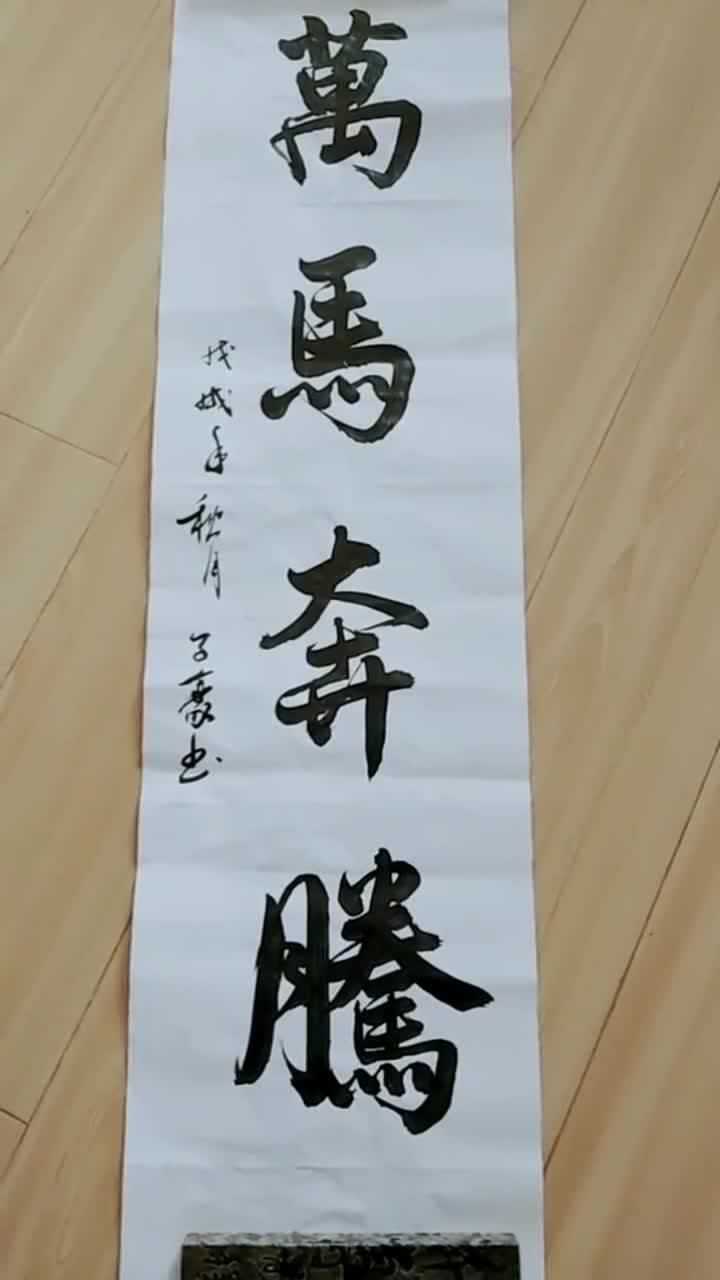 萬馬奔騰
戊戌年秋月子豪书